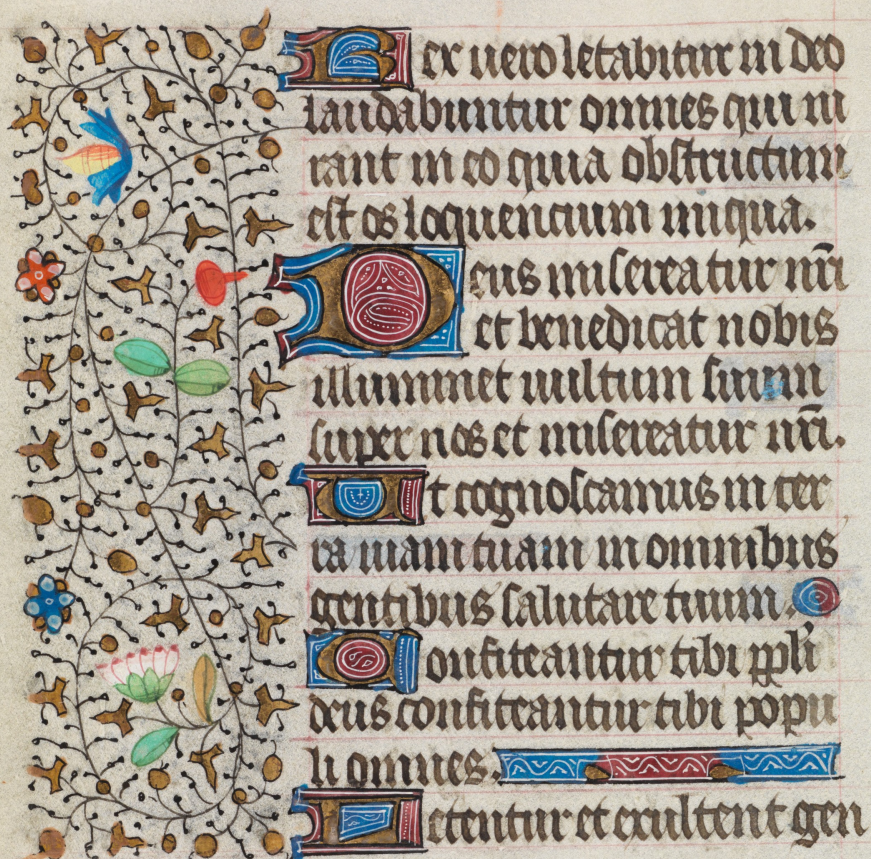 Rex uero letabitur in deo
laudabuntur omnes qui iu
rant in eo quia obstructum
est os loquencium iniqua.
Deus misereatur nr̄i
et benedicat nobis
illuminet uultum suum
super nos et misereatur nr̄i.
Ut cognoscamus in ter
ra uiam tuam in omnibus
gentibus salutare tuum.
Confiteantur tibi ppl̓i
deus confiteantur tibi popu
li omnes.
Letentur et exultent gen